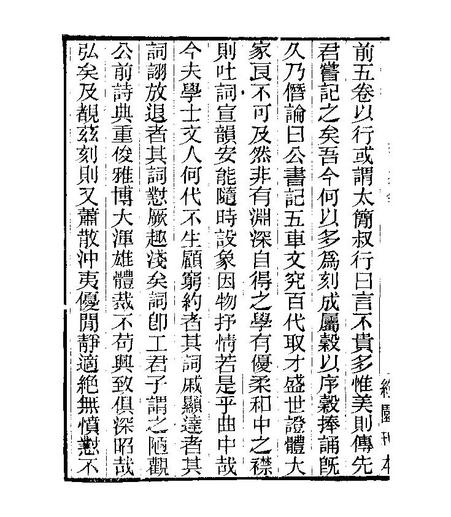 前五卷以行或謂太簡叔行曰言不貴多惟美則傳先
君嘗記之矣吾今何以多爲刻成屬穀以序穀捧誦旣
久乃僭論曰公書記五車文究百代取才盛世證體大
家良不可及然非有淵深自得之學有優柔和中之襟
則吐詞宣韻安能隨時設象因物抒情若是乎曲中哉
今夫學士文人何代不生顧窮約者其詞戚顯達者其
詞詡放退者其詞懟厥趣淺矣詞卽工君子謂之陋觀
公前詩典重俊雅博大渾雄體裁不苟興致俱深昭哉
弘矣及覩茲刻則又蕭散沖夷優閒靜適絶無憤懟不
園刊本